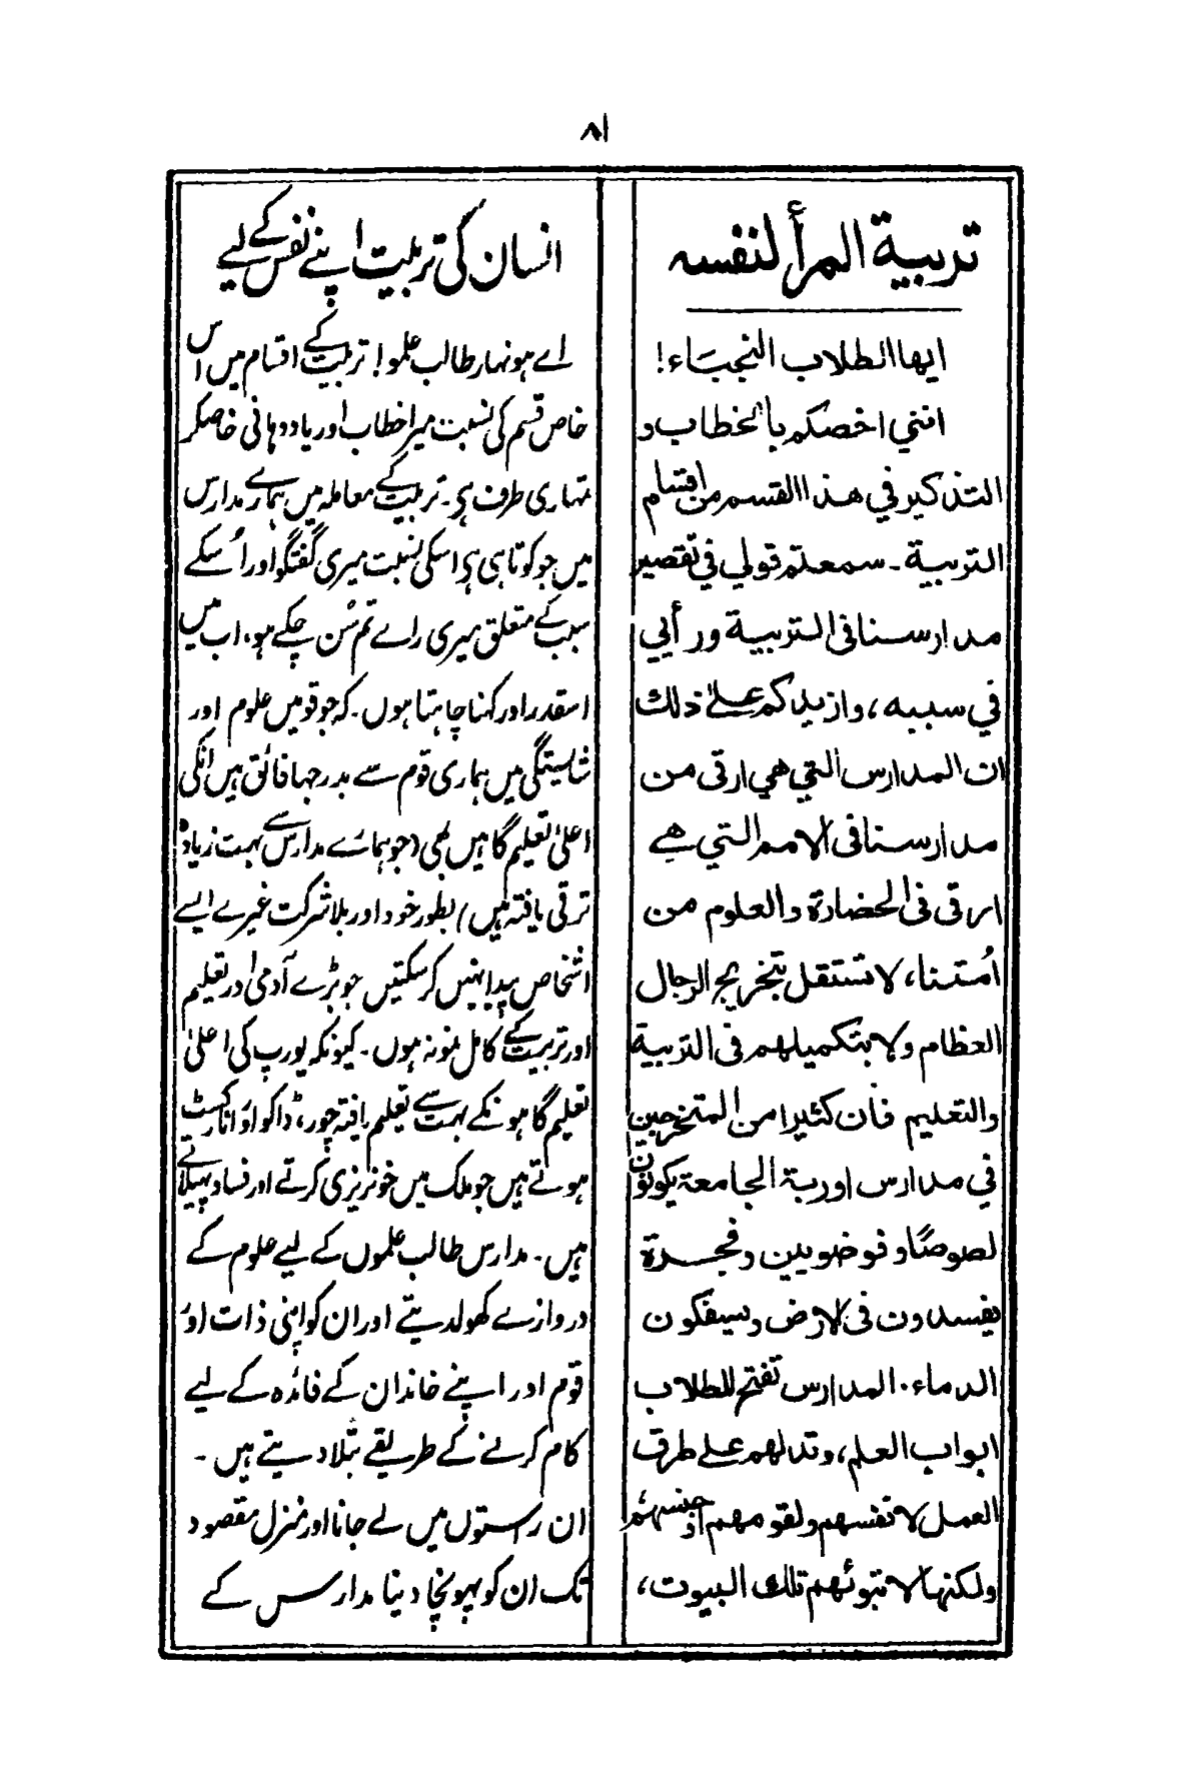 ٨١
تربية المرأ لنفسه
ايها الطلاب النجباء!
انني اخصكم بالخطاب و
التذكير في هذا القسم من اقسام
التربية۔ سمعتم قولي في تقصير
مدارسنا فى التربية ورأيي
في سببه، وازيدكم على ذلك
ان المدارس التي هي ارقى من
مدارسنا فى الامم التي هي
ارقى فى الحضارة والعلوم من
اُمتنا، لا تستقل بتخريج الرجال
العظام ولا بتكميلهم فى التربية
والتعليم فان كثيرا من المتخرجين
في مدارس اوربة الجامعة يكونون
لصوصًا وفوضويين وفجرة
يفسدون فى الارض ويسفكون
الدماء. المدارس تفتح للطلاب
ابواب العلم، وتدلهم على طرق
العمل لانفسهم ولقومهم او جنسهم
ولكنها لا تبوئهم تلك البيوت،
انسان کی تربیت اپنے نفس کے لیے
اے ہونہار طالب علمو! تربیت کے اقسام میں اس
خاص قسم کی نسبت میرا خطاب اور یاد دہانی خاصکر
تمہاری طرف ہی۔ تربیت کے معاملہ میں ہمارے مدارس
میں جو کوتاہی ہی اسکی نسبت میری گفتگو اور اُسکے
سبب کے متعلق میری راے تم سُن چکے ہو، اب میں
اسقدر اور کہنا چاہتا ہوں۔ کہ جو قومیں علوم اور
شایستگی میں ہماری قوم سے بدرجہا فائق ہیں اُنکی
اعلیٰ تعلیم گاہیں بھی (جو ہمارے مدارس سے بہت زیادہ
ترقی یافتہ ہیں) بطور خود اور بلا شرکت غیرے ایسے
اشخاص پیدا نہیں کر سکتیں جو بڑے آدمی اور تعلیم
اور تربیت کے کامل نمونہ ہوں۔ کیونکہ یورپ کی اعلیٰ
تعلیم گاہونکے بہت سے تعلیم یافتہ چور، ڈاکو اور انارکسٹ
ہوتے ہیں جو ملک میں خونریزی کرتے اور فساد پھیلاتے
ہیں۔ مدارس طالب علموں کے لیے علوم کے
دروازے کھولدیتے اور ان کو اپنی ذات اور
قوم اور اپنے خاندان کے فائدہ کے لیے
کام کرنے کے طریقے بتلا دیتے ہیں۔
ان راستوں میں لے جانا اور منزل مقصود
تک ان کو پہونچا دینا مدارس کے